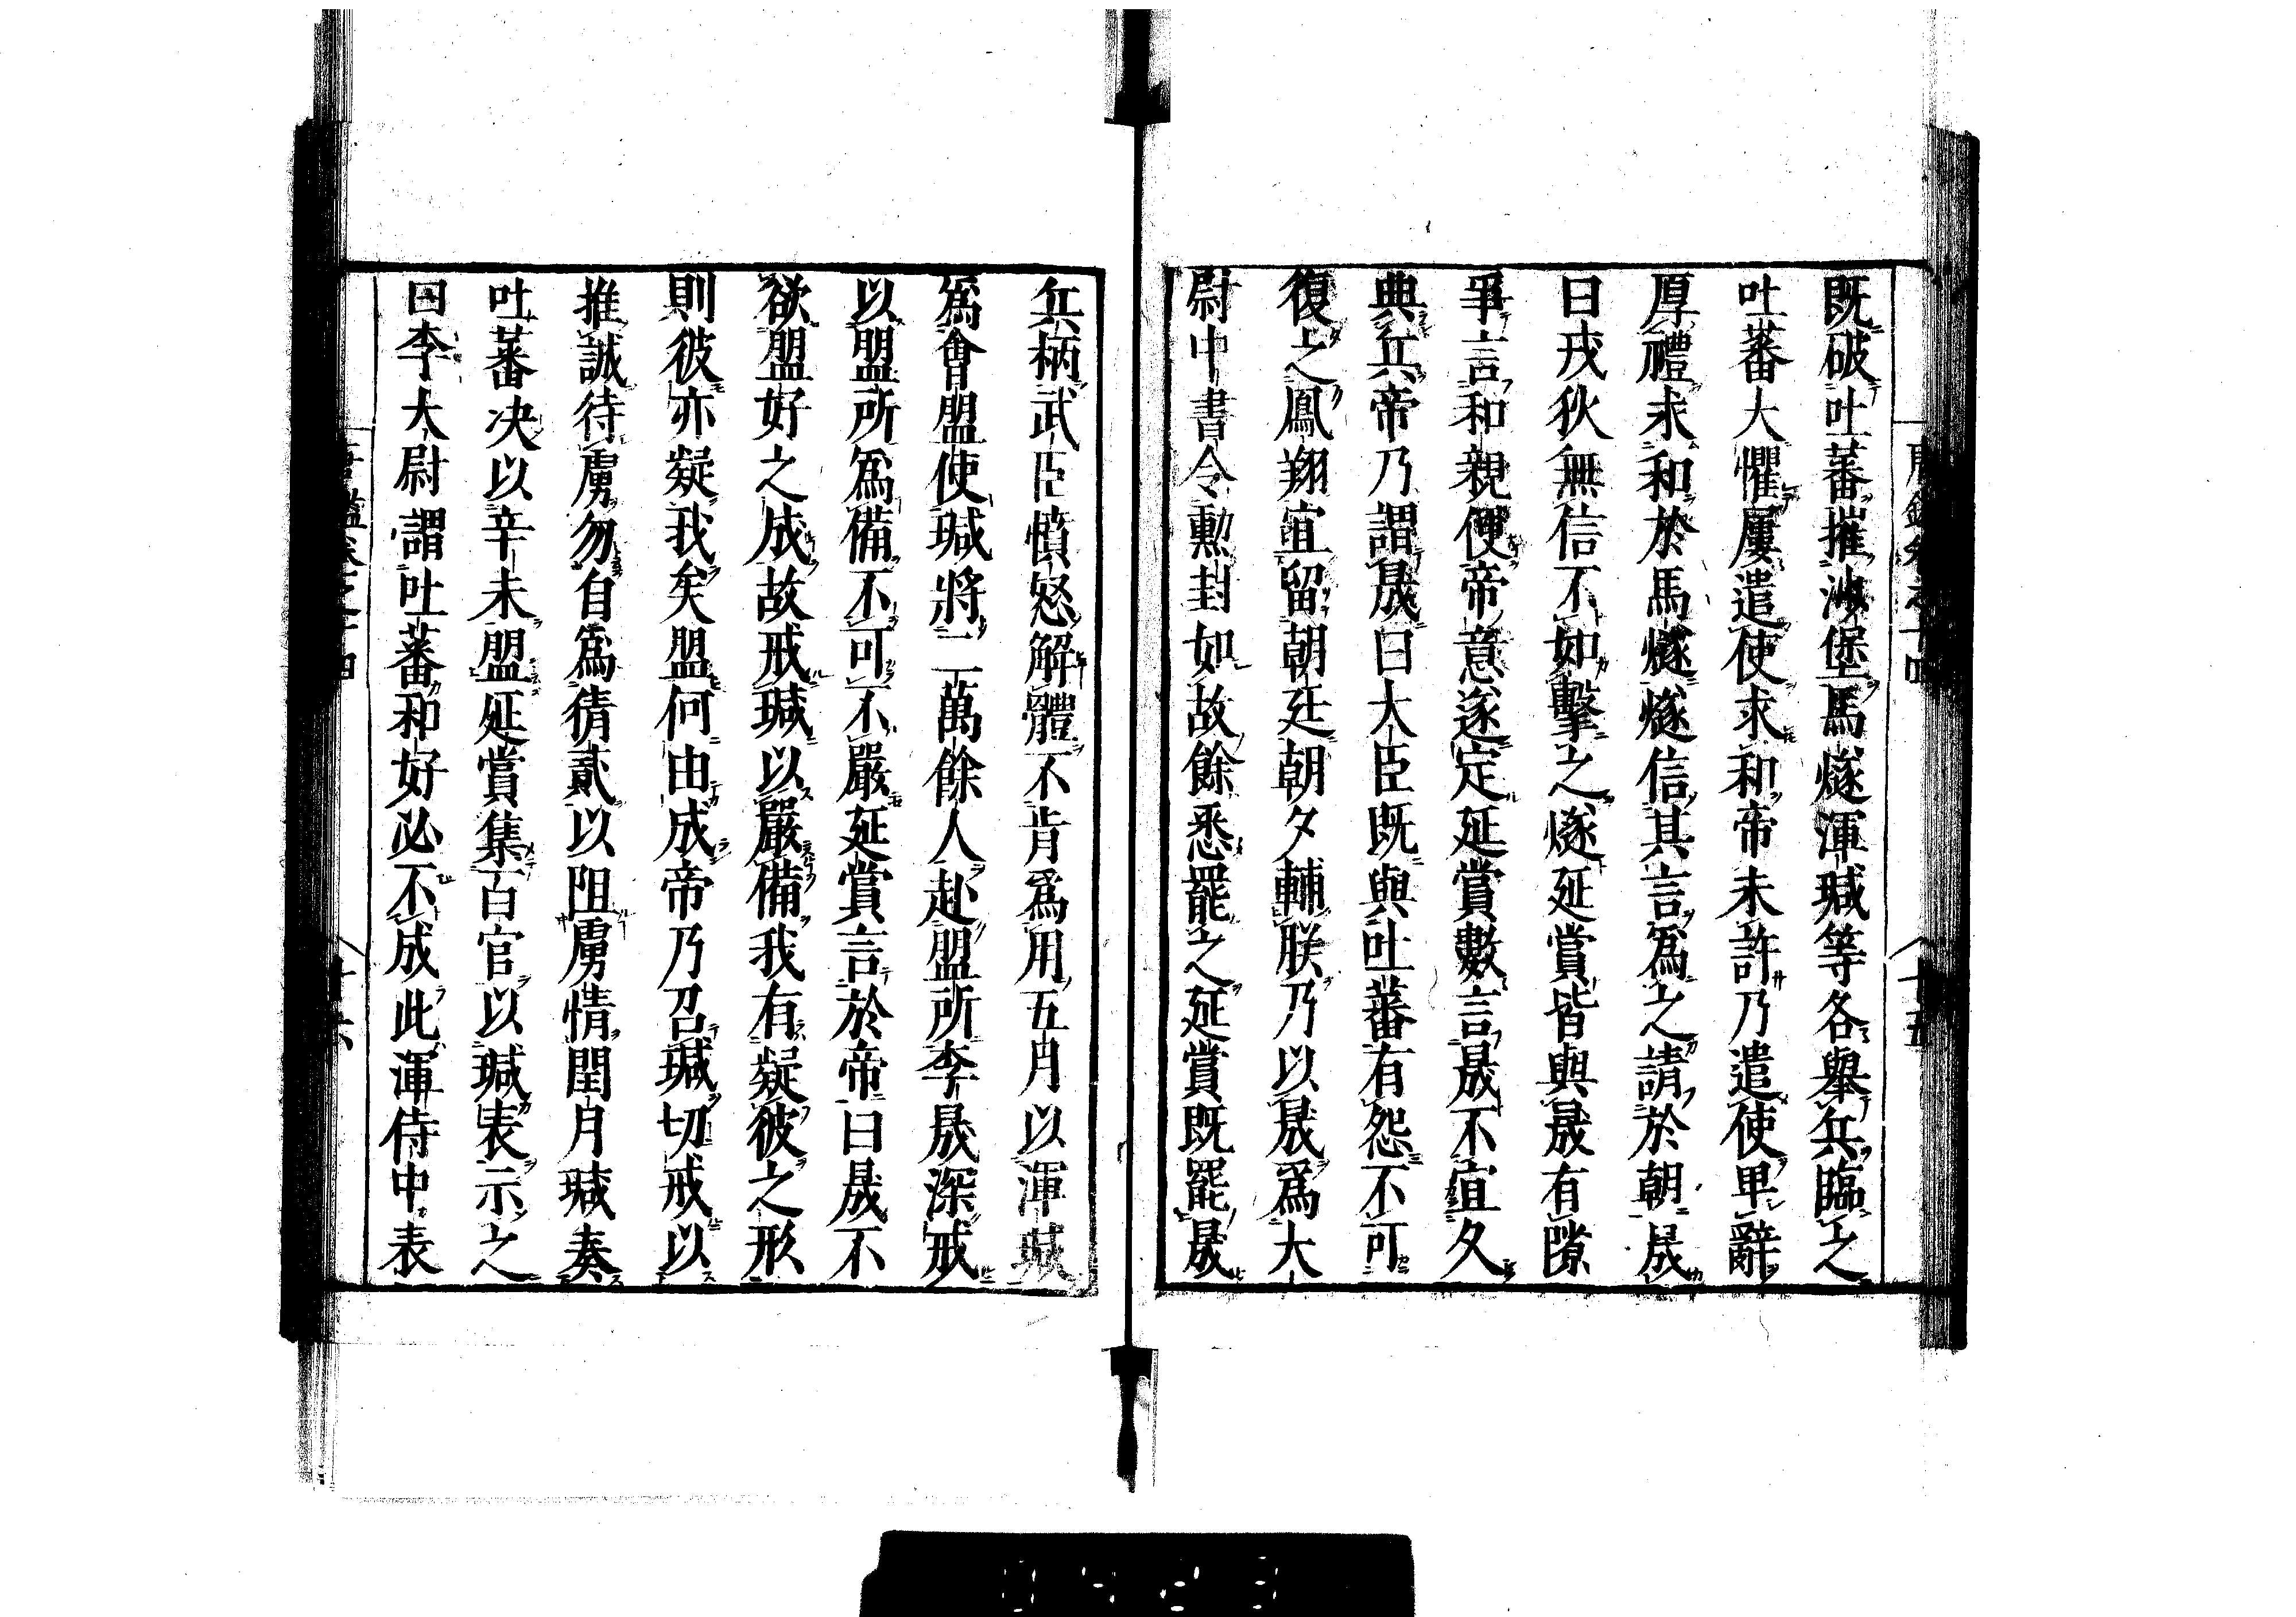 既破吐蕃摧沙堡馬燧渾瑊等各舉兵臨之
吐蕃大懼屢遣使求和帝未許乃遣使卑辭
厚禮求和於馬燧燧信其言爲之請於朝晟
曰戎狄無信不如擊之燧延賞皆與晟有隙
爭言和親便帝意遂定延賞數言晟不宜久
典兵帝乃謂晟曰大臣既與吐蕃有怨不可
復之鳳翔宜留朝廷朝夕輔朕乃以晟爲大
尉中書令勳封如故餘悉罷之延賞既罷晟
兵柄武臣憤怒解體不肯爲用五月以渾瑊
爲會盟使瑊將二萬餘人赴盟所李晟深戒
以盟所爲備不可不嚴延賞言於帝曰晟不
欲盟好之成故戒瑊以嚴備我有疑彼之形
則彼亦疑我矣盟何由成帝乃召瑊切戒以
推誠待虜勿自爲猜貳以阻虜情閏月瑊奏
吐蕃决以辛未盟延賞集百官以瑊表示之
曰李大尉謂吐蕃和好必不成此渾侍中表